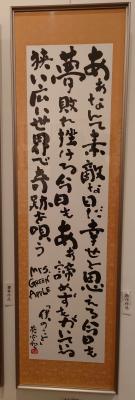 ああなんて素敵な日だ幸せと思える今日も
夢敗れ挫ける今日もああ諦めずもがいている
狭い広い世界で奇跡を唄う
Mrs.
GREEN
APPLE
僕のこと